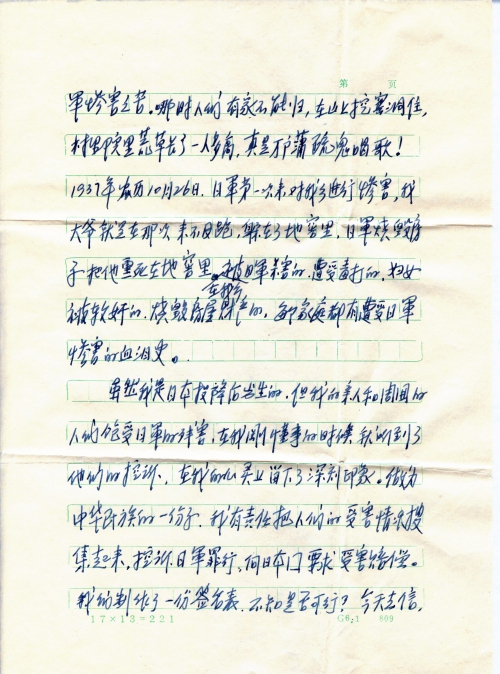 第　　页
军惨害之苦。那时人们有家不能归，在山上挖窑洞住，
村里院里荒草长了一人多高，真是万户萧疏鬼唱歌！
1937年农历10月26日，日军第一次来对我乡进行惨害，我
大爷就是在那次来不及跑，躲在了地窑里，日军烧毁房
子把他熏死在地窑里。被日军杀害的，遭受毒打的，妇女
在我乡
被软奸的，烧毁房屋财产的，每个家庭都有遭受日军
惨害的血泪史。
虽然我是日本投降后发生的，但我的亲人和周围的
人们饱受日军的残害，在我刚懂事的时候我听到了
他们的控诉，在我的心灵上留下了深刻印象。做为
中华民族的一份子，我有责任把人们的受害情况搜
集起来，控诉日军罪行，向日本门要求受害赔偿。
我们制做了一份签名表，不知是否可行？今天去信，
17×13=221
G6:1 809